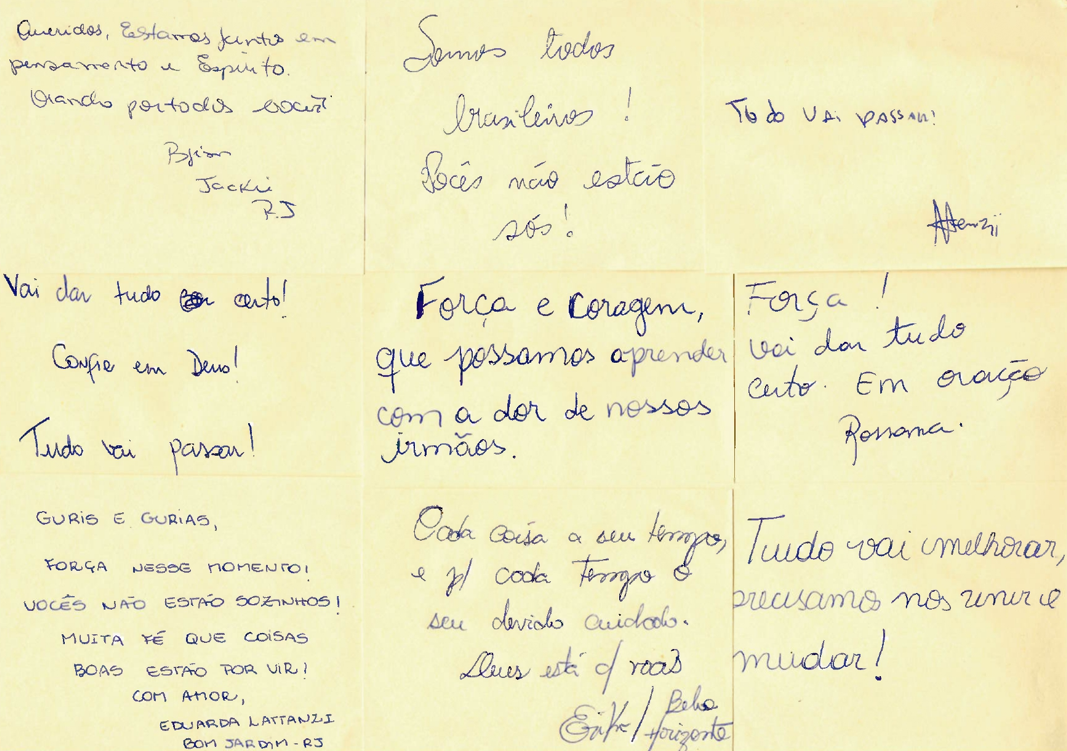 Queridos, Estamos juntos em
pensamento e Espírito.
Orando por todos vocês!
Bjim
Jackie
RJ
Somos todos
brasileiros !
Vocês não estão
sós!
Tudo vai passar!
Vai dar tudo certo!
Confie em Deus!
Tudo vai passar!
Força e Coragem,
que possamos aprender
com a dor de nossos
irmãos.
Força !
Vai dar tudo
certo. Em oração
Rossana.
GURIS E GURIAS,
FORÇA NESSE MOMENTO!
VOCÊS NÃO ESTÃO SOZINHOS!
MUITA FÉ QUE COISAS
BOAS ESTÃO POR VIR!
COM AMOR,
EDUARDA LATTANZI
BOM JARDIM - RJ
Cada coisa a seu tempo,
e p/ cada Tempo o
seu devido cuidado.
Deus está c/ vocês
Erika/ Belo
Horizonte
Tudo vai melhorar,
precisamo nos unir e
mudar!